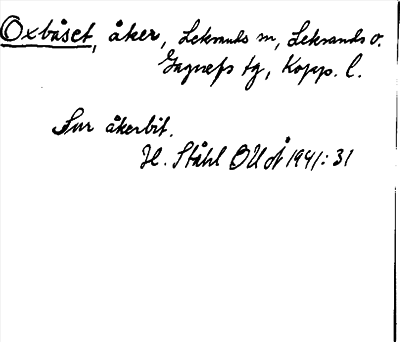 Oxbåset, åker, Leksands sn, Leksands o.
Gagnefs tg, Kopp. l.
Fur åkerbit.
H. Ståhl OUÅ 1941:31